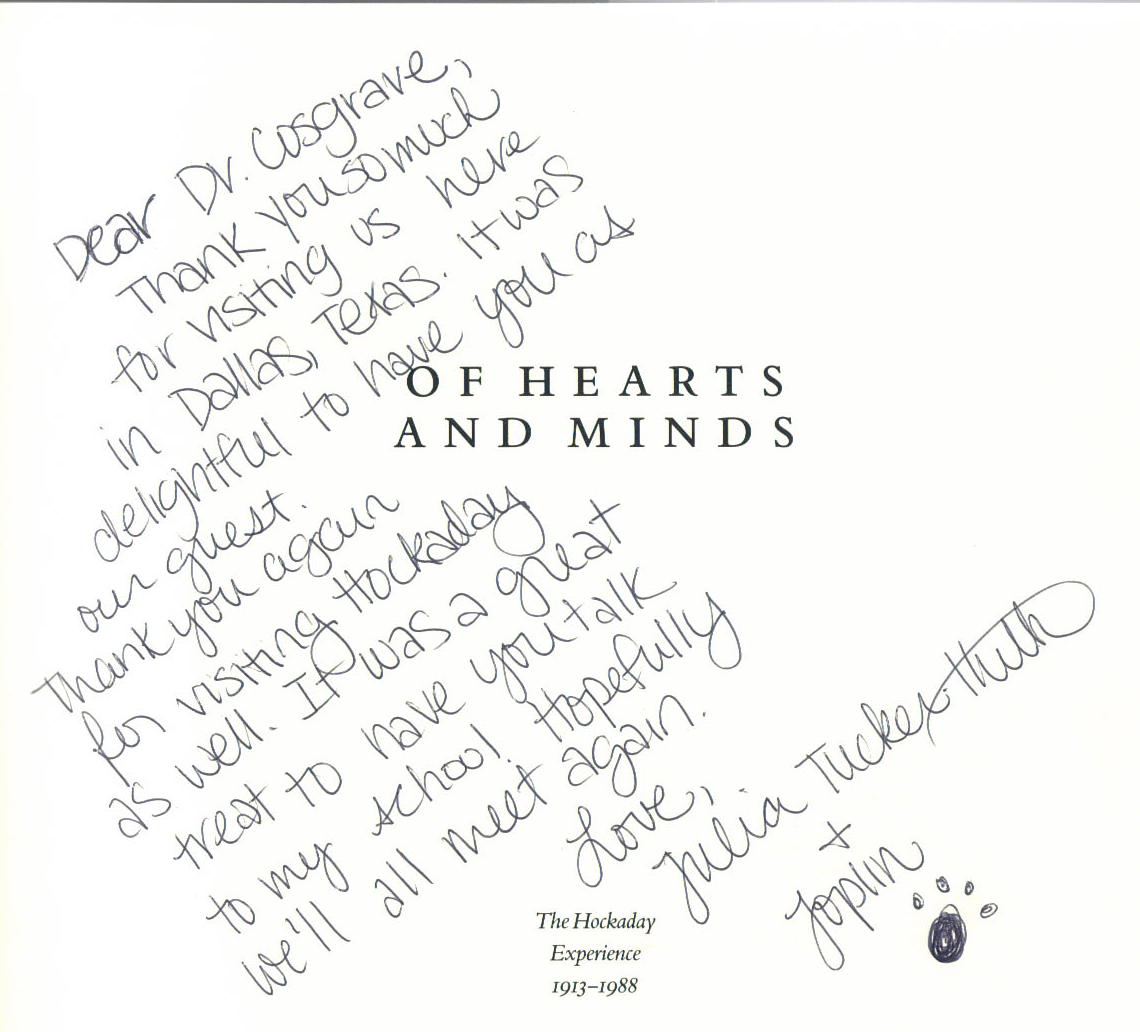 Dear Dr. Cosgrave,
Thank you so much
for visiting us here
in Dallas, Texas. It was
delightful to have you as
our guest.
Thank you again
for visiting Hockaday
as well. It was a great
treat to have you talk
to my school. Hopefully
we'll all meet again.
Love,
Julia Tucker-Huth
+
Joplin
OF HEARTS
AND MINDS
The Hockaday
Experience
1913–1988